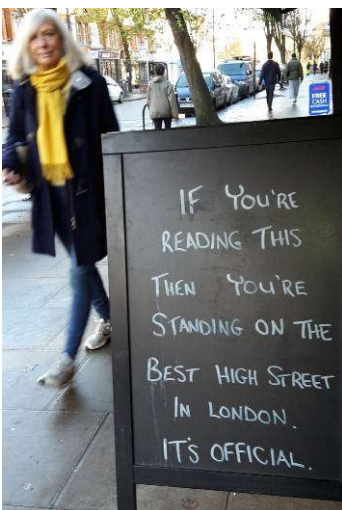 FREE
CASH
IF YOU'RE
READING THIS
THEN YOU'RE
STANDING ON THE
BEST HIGH STREET
IN LONDON.
IT'S OFFICIAL.